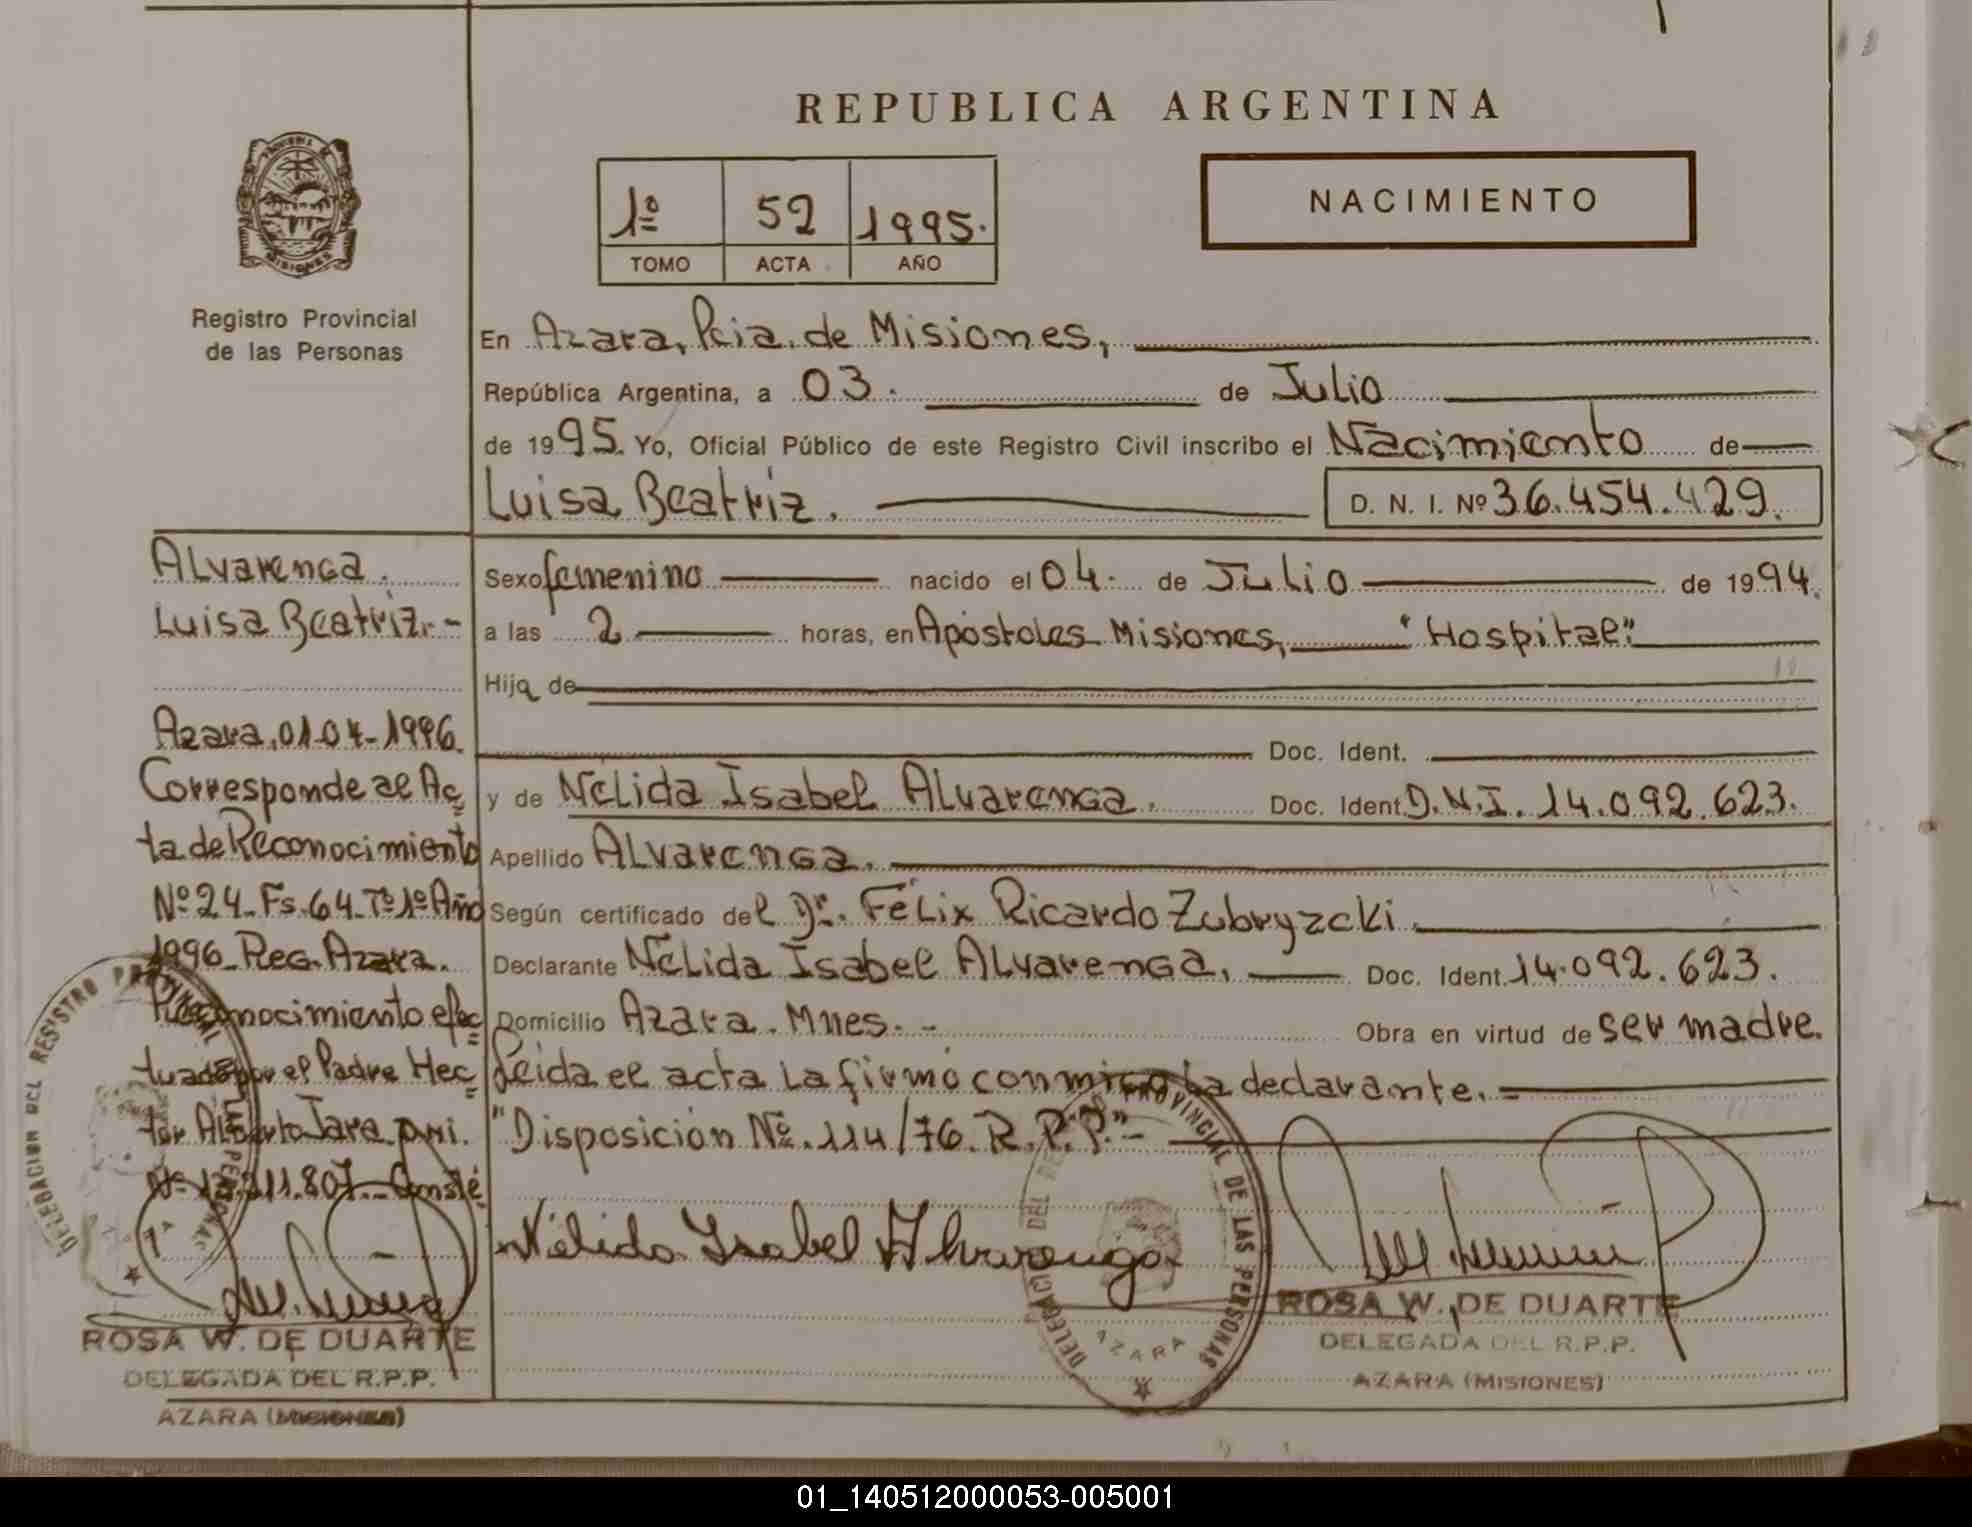 REPUBLICA ARGENTINA
MISIONES
Registro Provincial
de las Personas
1º 52 1995.
TOMO ACTA AÑO
NACIMIENTO
En Azara, Pcia. de Misiones,
República Argentina, a 03. de Julio
de 1995. Yo, Oficial Público de este Registro Civil inscribo el Nacimiento de
Luisa Beatriz. D. N. I. Nº 36.454.429.
Sexo femenino nacido el 04. de Julio de 1994.
a las 2 horas, en Apóstoles Misiones, "Hospital".
Hija de
Doc. Ident.
y de Nélida Isabel Alvarenga. Doc. Ident. D.N.I. 14.092.623.
Apellido Alvarenga.
Según certificado del Dr. Félix Ricardo Zubryzcki
Declarante Nélida Isabel Alvarenga, Doc. Ident. 14.092.623.
Domicilio Azara. Mnes. - Obra en virtud de ser madre.
Leida el acta la firmó conmigo la declarante. =
"Disposición Nº. 114/76. R.P.P." -
Nélida Isabel Alvarenga
DELEGACION DEL REGISTRO PROVINCIAL DE LAS PERSONAS
AZARA
ROSA W. DE DUARTE
DELEGADA DEL R.P.P.
AZARA (MISIONES)
Alvarenga.
Luisa Beatriz. -
Azara, 01-04-1996.
Corresponde al Ac=
ta de Reconocimiento
Nº 24. Fs. 64. Tº 1º Año
1996. Reg. Azara.
Reconocimiento efec=
tuado por el Padre Hec=
tor Alberto Jara D.N.I.
Conste.
DELEGACION DEL REGISTRO PROVINCIAL DE LAS PERSONAS
ROSA W. DE DUARTE
DELEGADA DEL R.P.P.
AZARA (MISIONES)
01_140512000053-005001